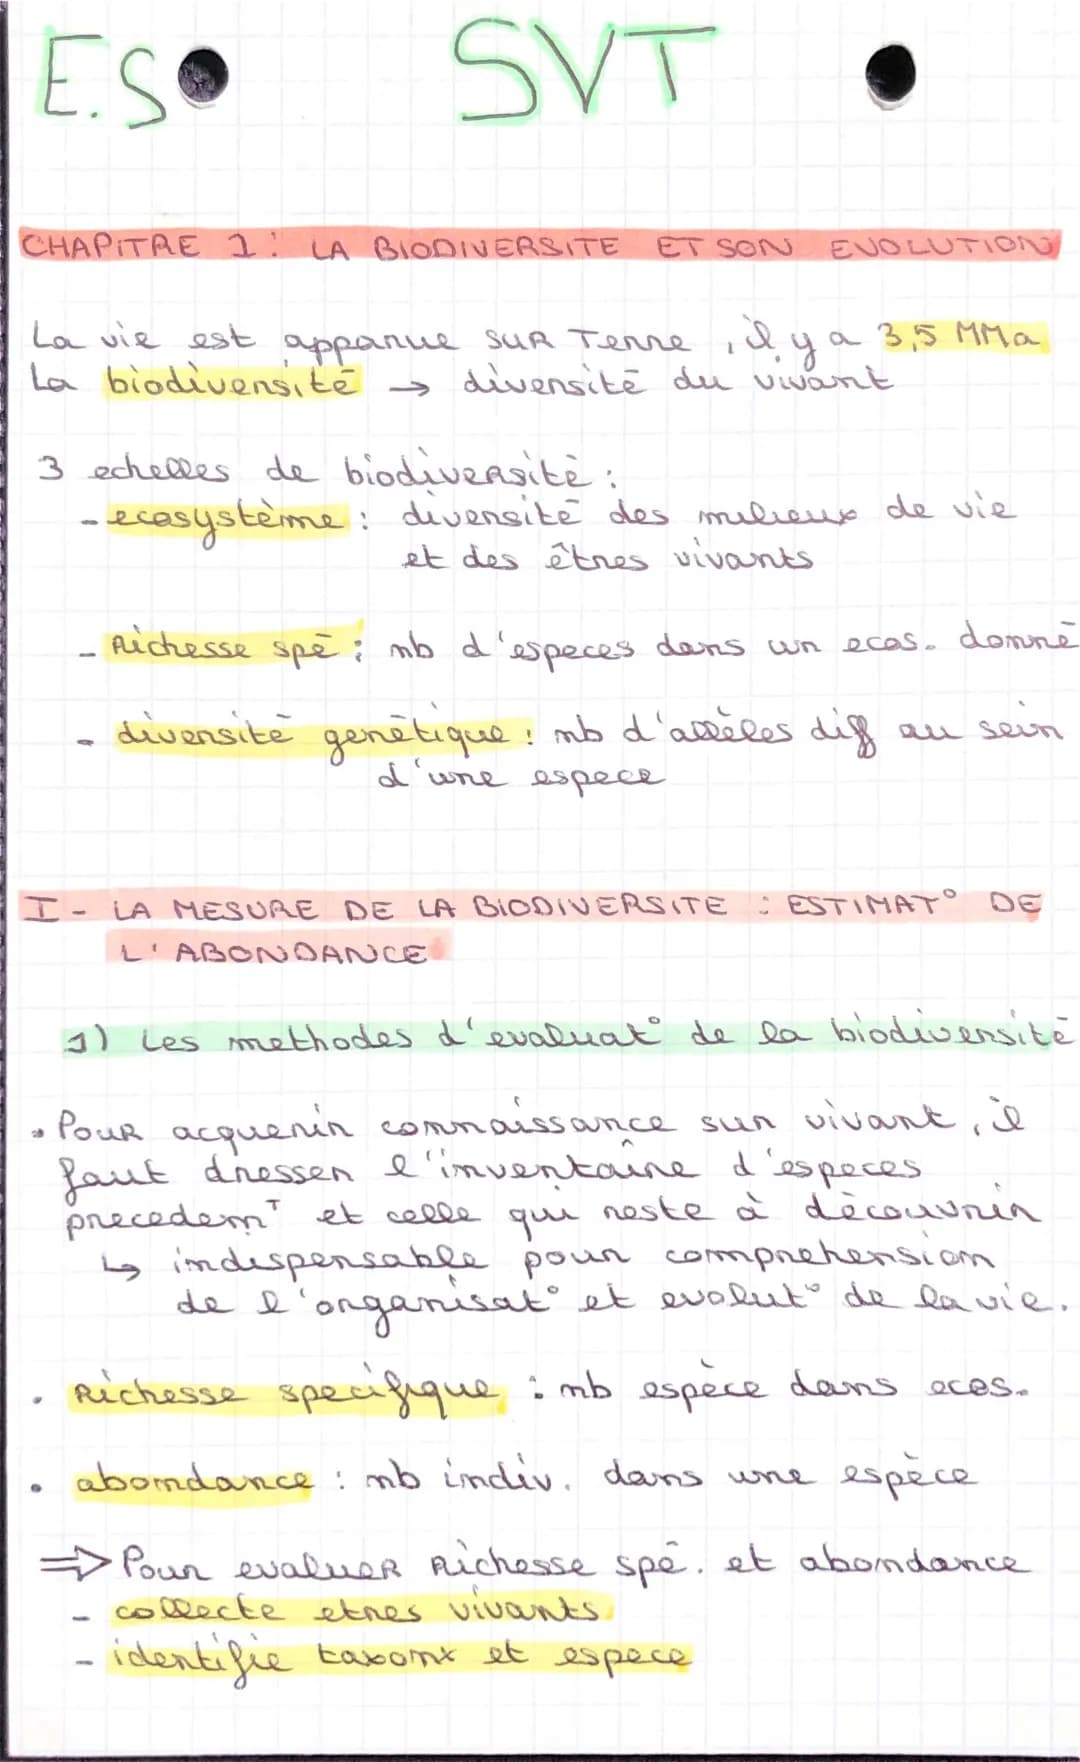 E.S SVT
CHAPITRE 1 : LA BIODIVERSITE ET SON EVOLUTION
La vie est apparue sur Terre, il y a 3,5 MMa
La biodiversité → diversité du vivant
3 echelles de biodiversité :
- ecosystème : diversité des milieux de vie
et des êtres vivants
- Richesse spé : nb d'especes dans un ecos. donné
- diversité genétique : nb d'allèles diff au sein
d'une espece
I - LA MESURE DE LA BIODIVERSITE : ESTIMAT° DE
L'ABONDANCE
1) Les methodes d'evaluat° de la biodiversité
• Pour acquerir connaissance sur vivant, il
faut dresser l'inventaîre d'especes
precedemᵀ et celle qui reste à découvrir
↳ indispensable pour comprehension
de l'organisat° et evolut° de la vie.
• Richesse specifique : nb espèce dans ecos.
• abondance : nb indiv. dans une espèce
⇒ Pour evaluer Richesse spé. et abondance
- collecte etres vivants
- identifie taxonx et espece